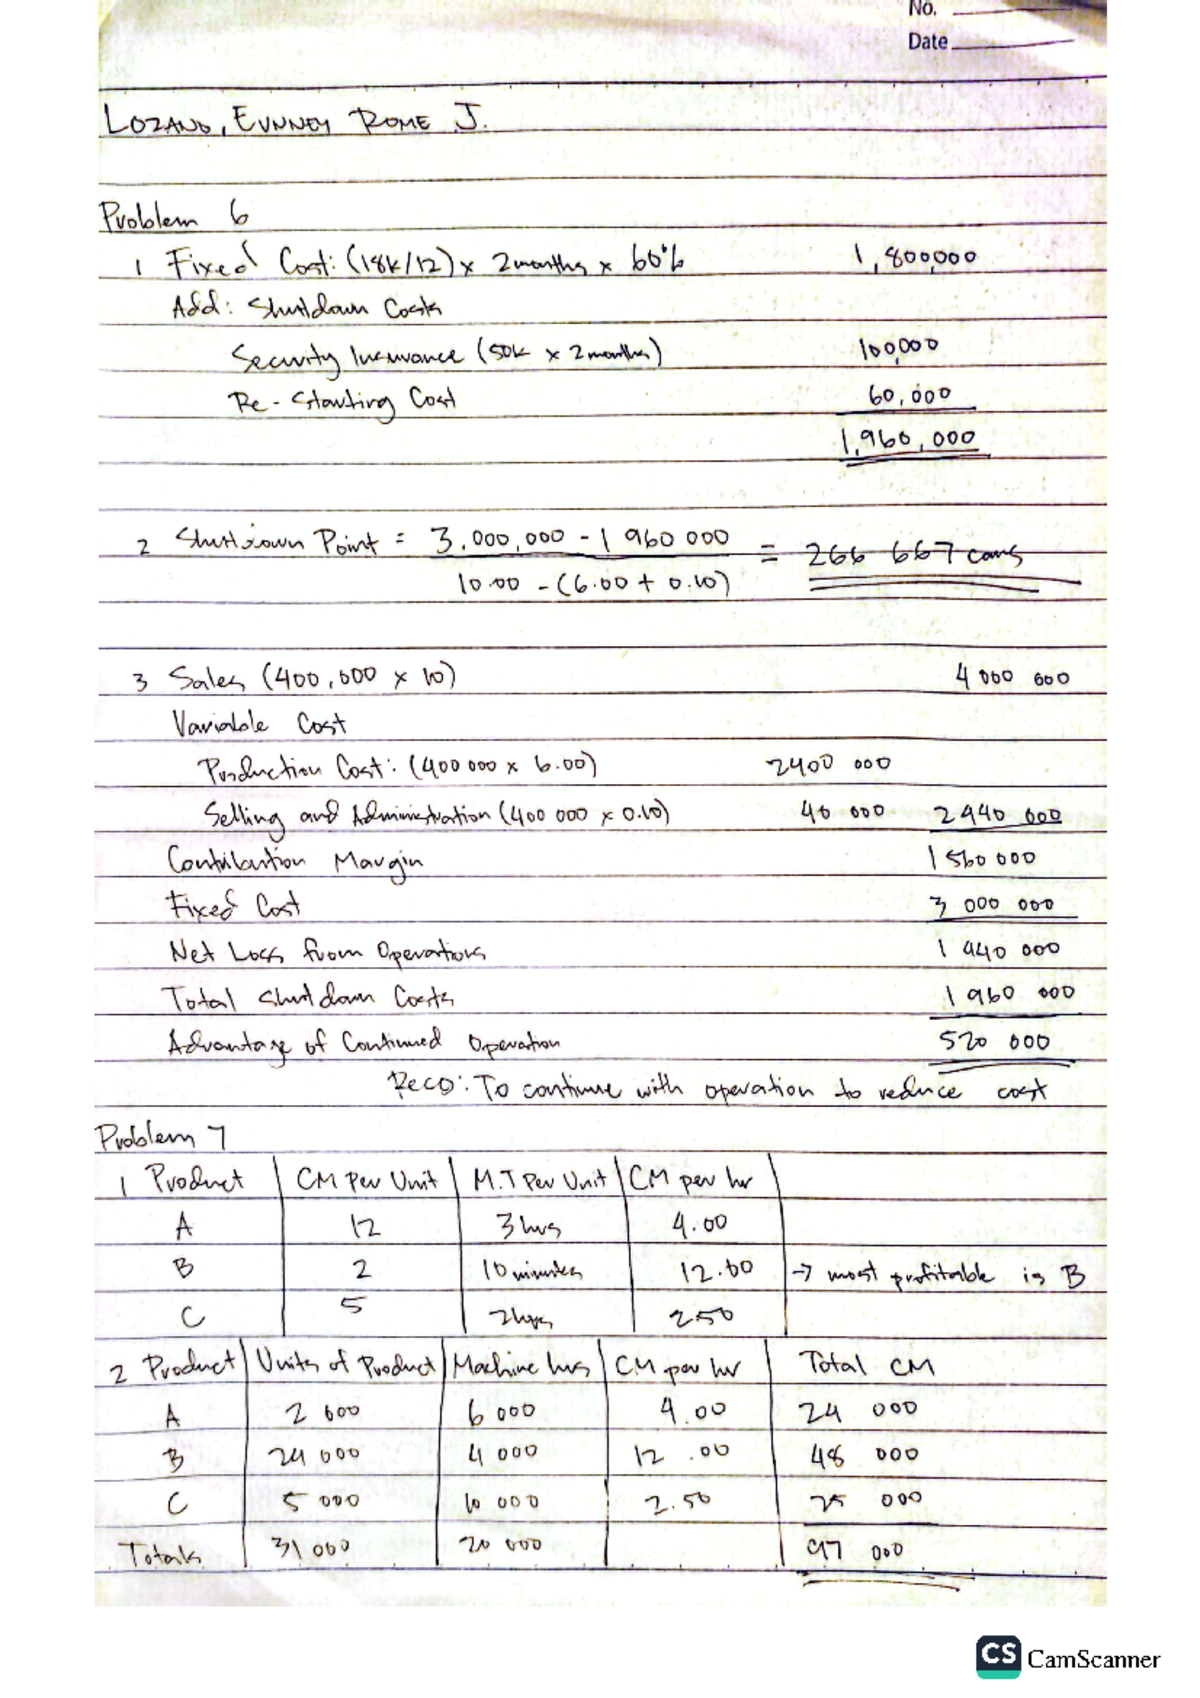 No.
Date
LOZANO, EUNNEY ROME J.
Problem 6
1 Fixed Cost: (18K/12) x 2 months x 60% 1,800,000
Add: Shutdown Costs
Security Insurance (50k x 2 months) 100,000
Re-Starting Cost 60,000
1,960,000
2 Shutdown Point = 3,000,000 - 1 960 000 = 266 667 cans
10.00 - (6.00 + 0.10)
3 Sales (400,000 x 10) 4 000 000
Variable Cost
Production Cost: (400 000 x 6.00) 2400 000
Selling and Administration (400 000 x 0.10) 40 000 2 440 000
Contribution Margin 1 560 000
Fixed Cost 3 000 000
Net Loss from Operations 1 440 000
Total Shutdown Costs 1 960 000
Advantage of Continued Operation 520 000
Reco: To continue with operation to reduce cost
Problem 7
1 Product CM Per Unit M.T Per Unit CM per hr
A 12 3 hrs 4.00
B 2 10 minutes 12.00 → most profitable is B
C 5 2 hrs 2.50
2 Product Units of Product Machine hrs CM per hr Total CM
A 2 000 6 000 4.00 24 000
B 24 000 4 000 12.00 48 000
C 5 000 10 000 2.50 25 000
Totals 31 000 20 000 97 000
CS CamScanner